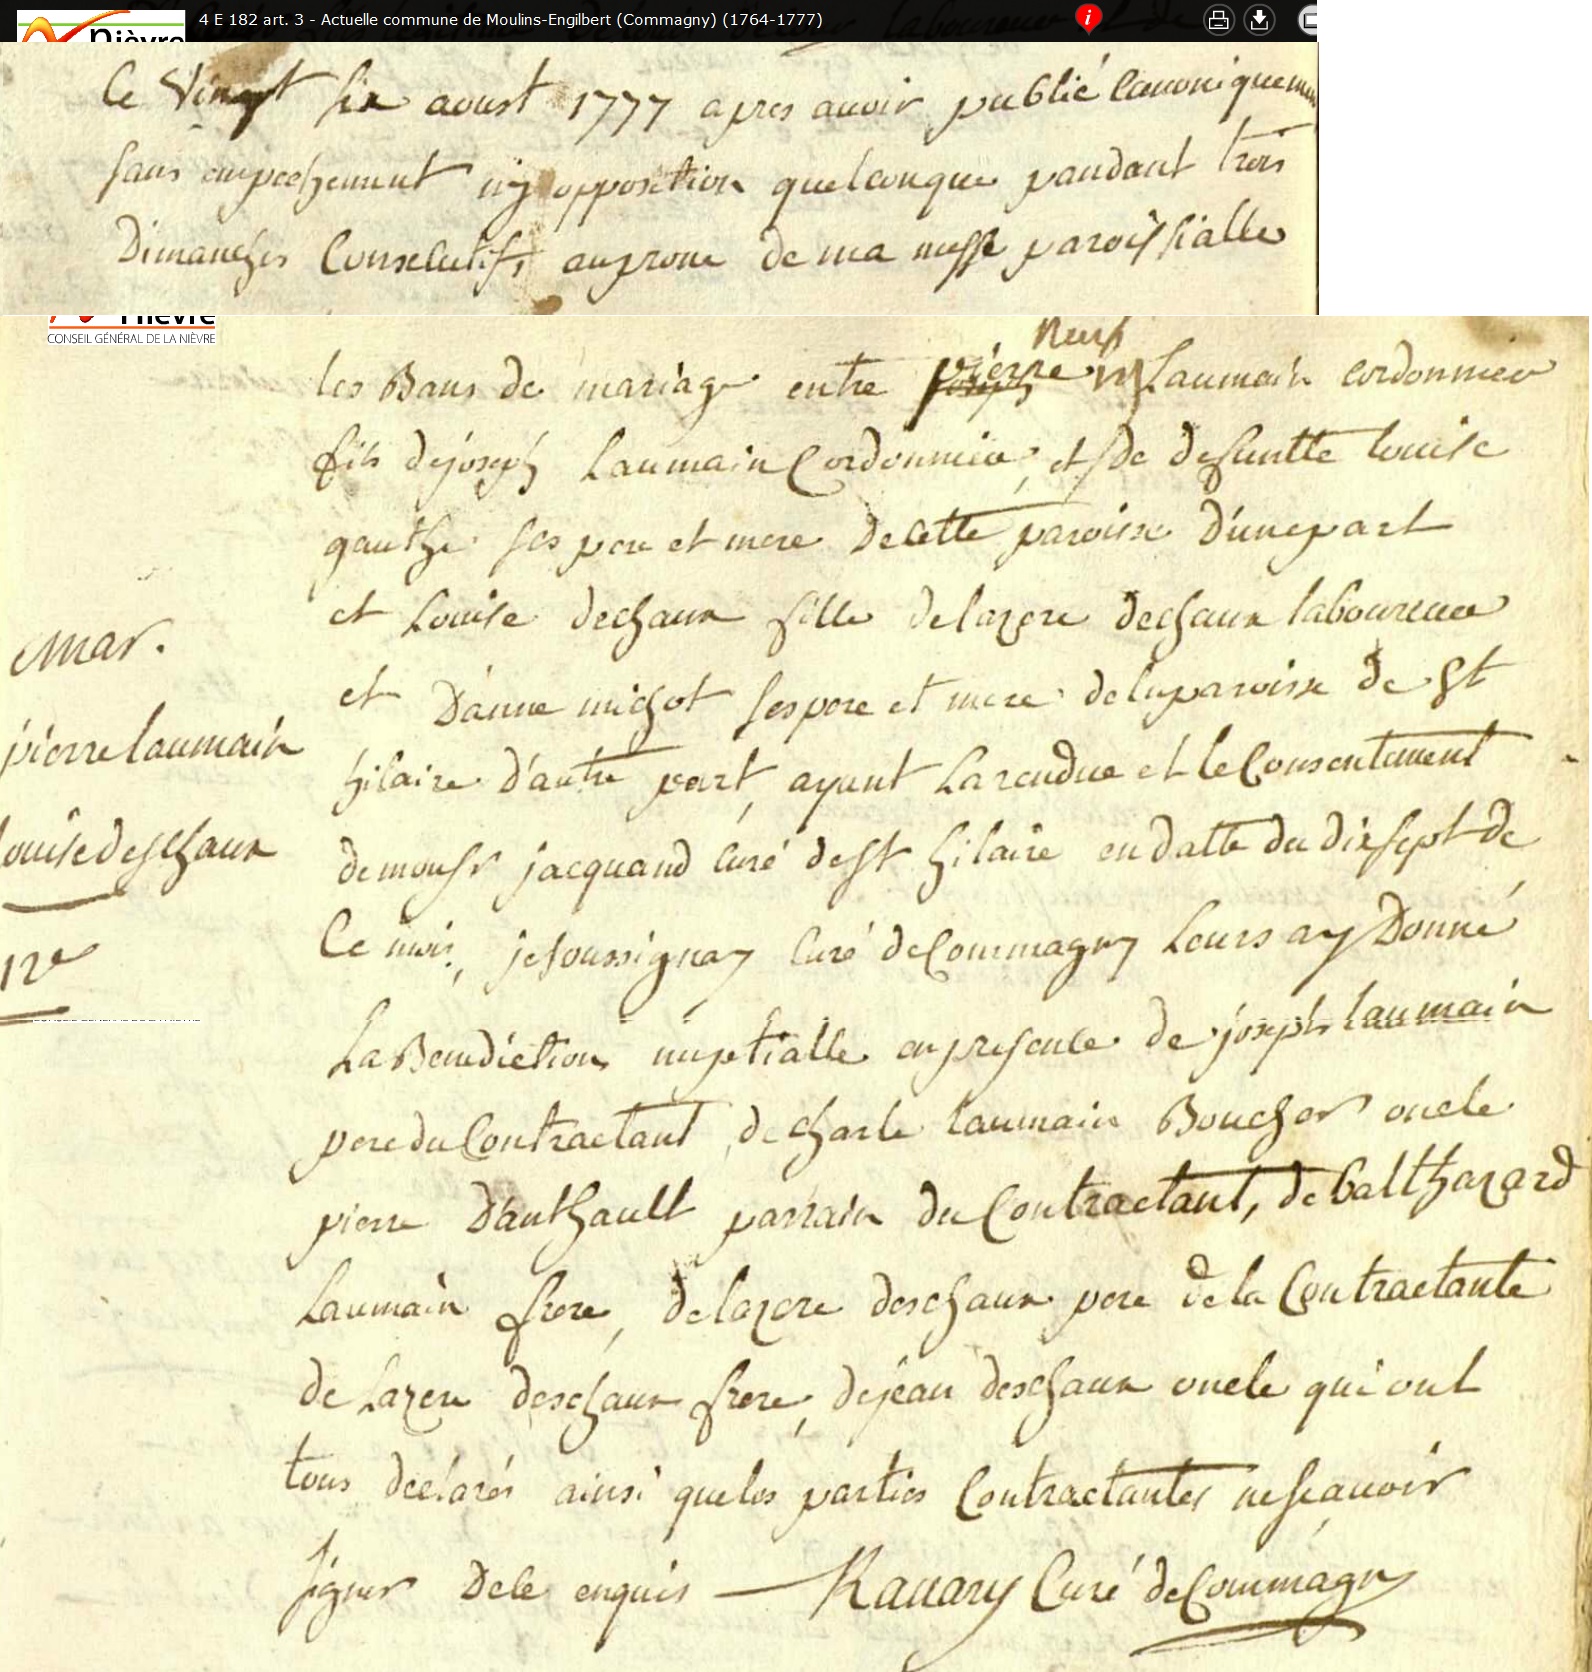 4 E 182 art. 3 - Actuelle commune de Moulins-Engilbert (Commagny) (1764-1777)
Nièvre
Ce vingt six aoust 1777 apres auoir publié Canoniquem
sans empechement ny opposition quelconque pandant trois
Dimanches Consecutifs, au prone de ma messe paroissialle
Nièvre
CONSEIL GÉNÉRAL DE LA NIÈVRE
les Bans de mariage entre pierre Laumain cordonnier
fils de joseph Laumain Cordonnier, et de defuntte louise
gauthe ses pere et mere de cette paroisse d'une part
et Louise dechaux fille de lazere dechaux laboureur
et D'anne michot ses pere et mere de la paroisse de St
hilaire d'autre part, ayant La rendue et le Consentement
de monsr jacquand Curé de St hilaire en datte du dixsept de
Ce mois, je soussignay Curé de Commagny Leurs ay Donné
La Benediction nuptialle en presence de joseph laumain
pere du Contractant, de charle laumain Boucher oncle
pierre D'anthault parrain du Contractant, de balthazard
Laumain frere, de lazere deschaux pere de la Contractante
de Lazere deschaux frere, de jean deschaux oncle qui ont
tous declarés ainsi que les parties Contractantes ne scauoir
signer De ce enquis — Rauary Curé de Commagny
mar.
pierre laumain
louise deschaux
12e